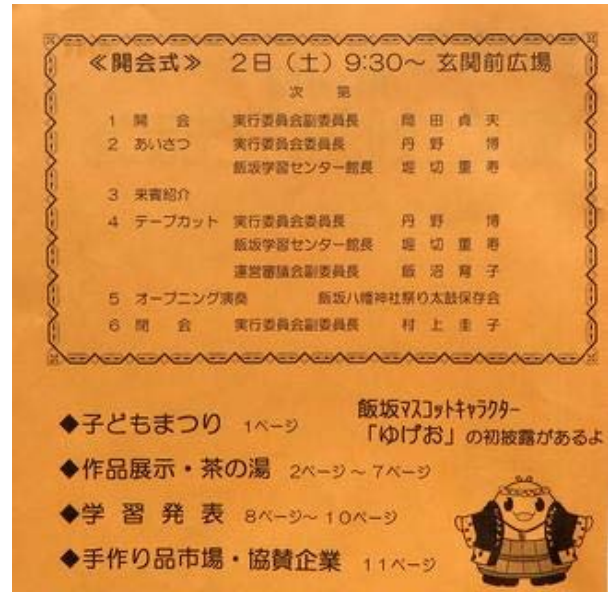 ≪開会式≫ 2日（土）9:30～ 玄関前広場
次 第
1 開 会 実行委員会副委員長 岡 田 貞 夫
2 あいさつ 実行委員会委員長 丹 野 博
飯坂学習センター館長 堀 切 重 寿
3 来賓紹介
4 テープカット 実行委員会委員長 丹 野 博
飯坂学習センター館長 堀 切 重 寿
運営審議会副委員長 飯 沼 育 子
5 オープニング演奏 飯坂八幡神社祭り太鼓保存会
6 閉 会 実行委員会副委員長 村 上 圭 子
飯坂マスコットキャラクター
「ゆげお」の初披露があるよ
◆子どもまつり 1ページ
◆作品展示・茶の湯 2ページ～7ページ
◆学 習 発 表 8ページ～10ページ
◆手作り品市場・協賛企業 11ページ